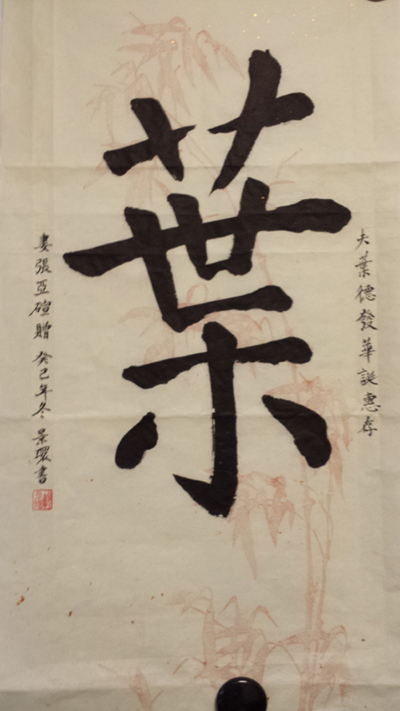 夫葉德發華誕惠存
葉
妻張亞碹贈 癸巳年冬 景環書